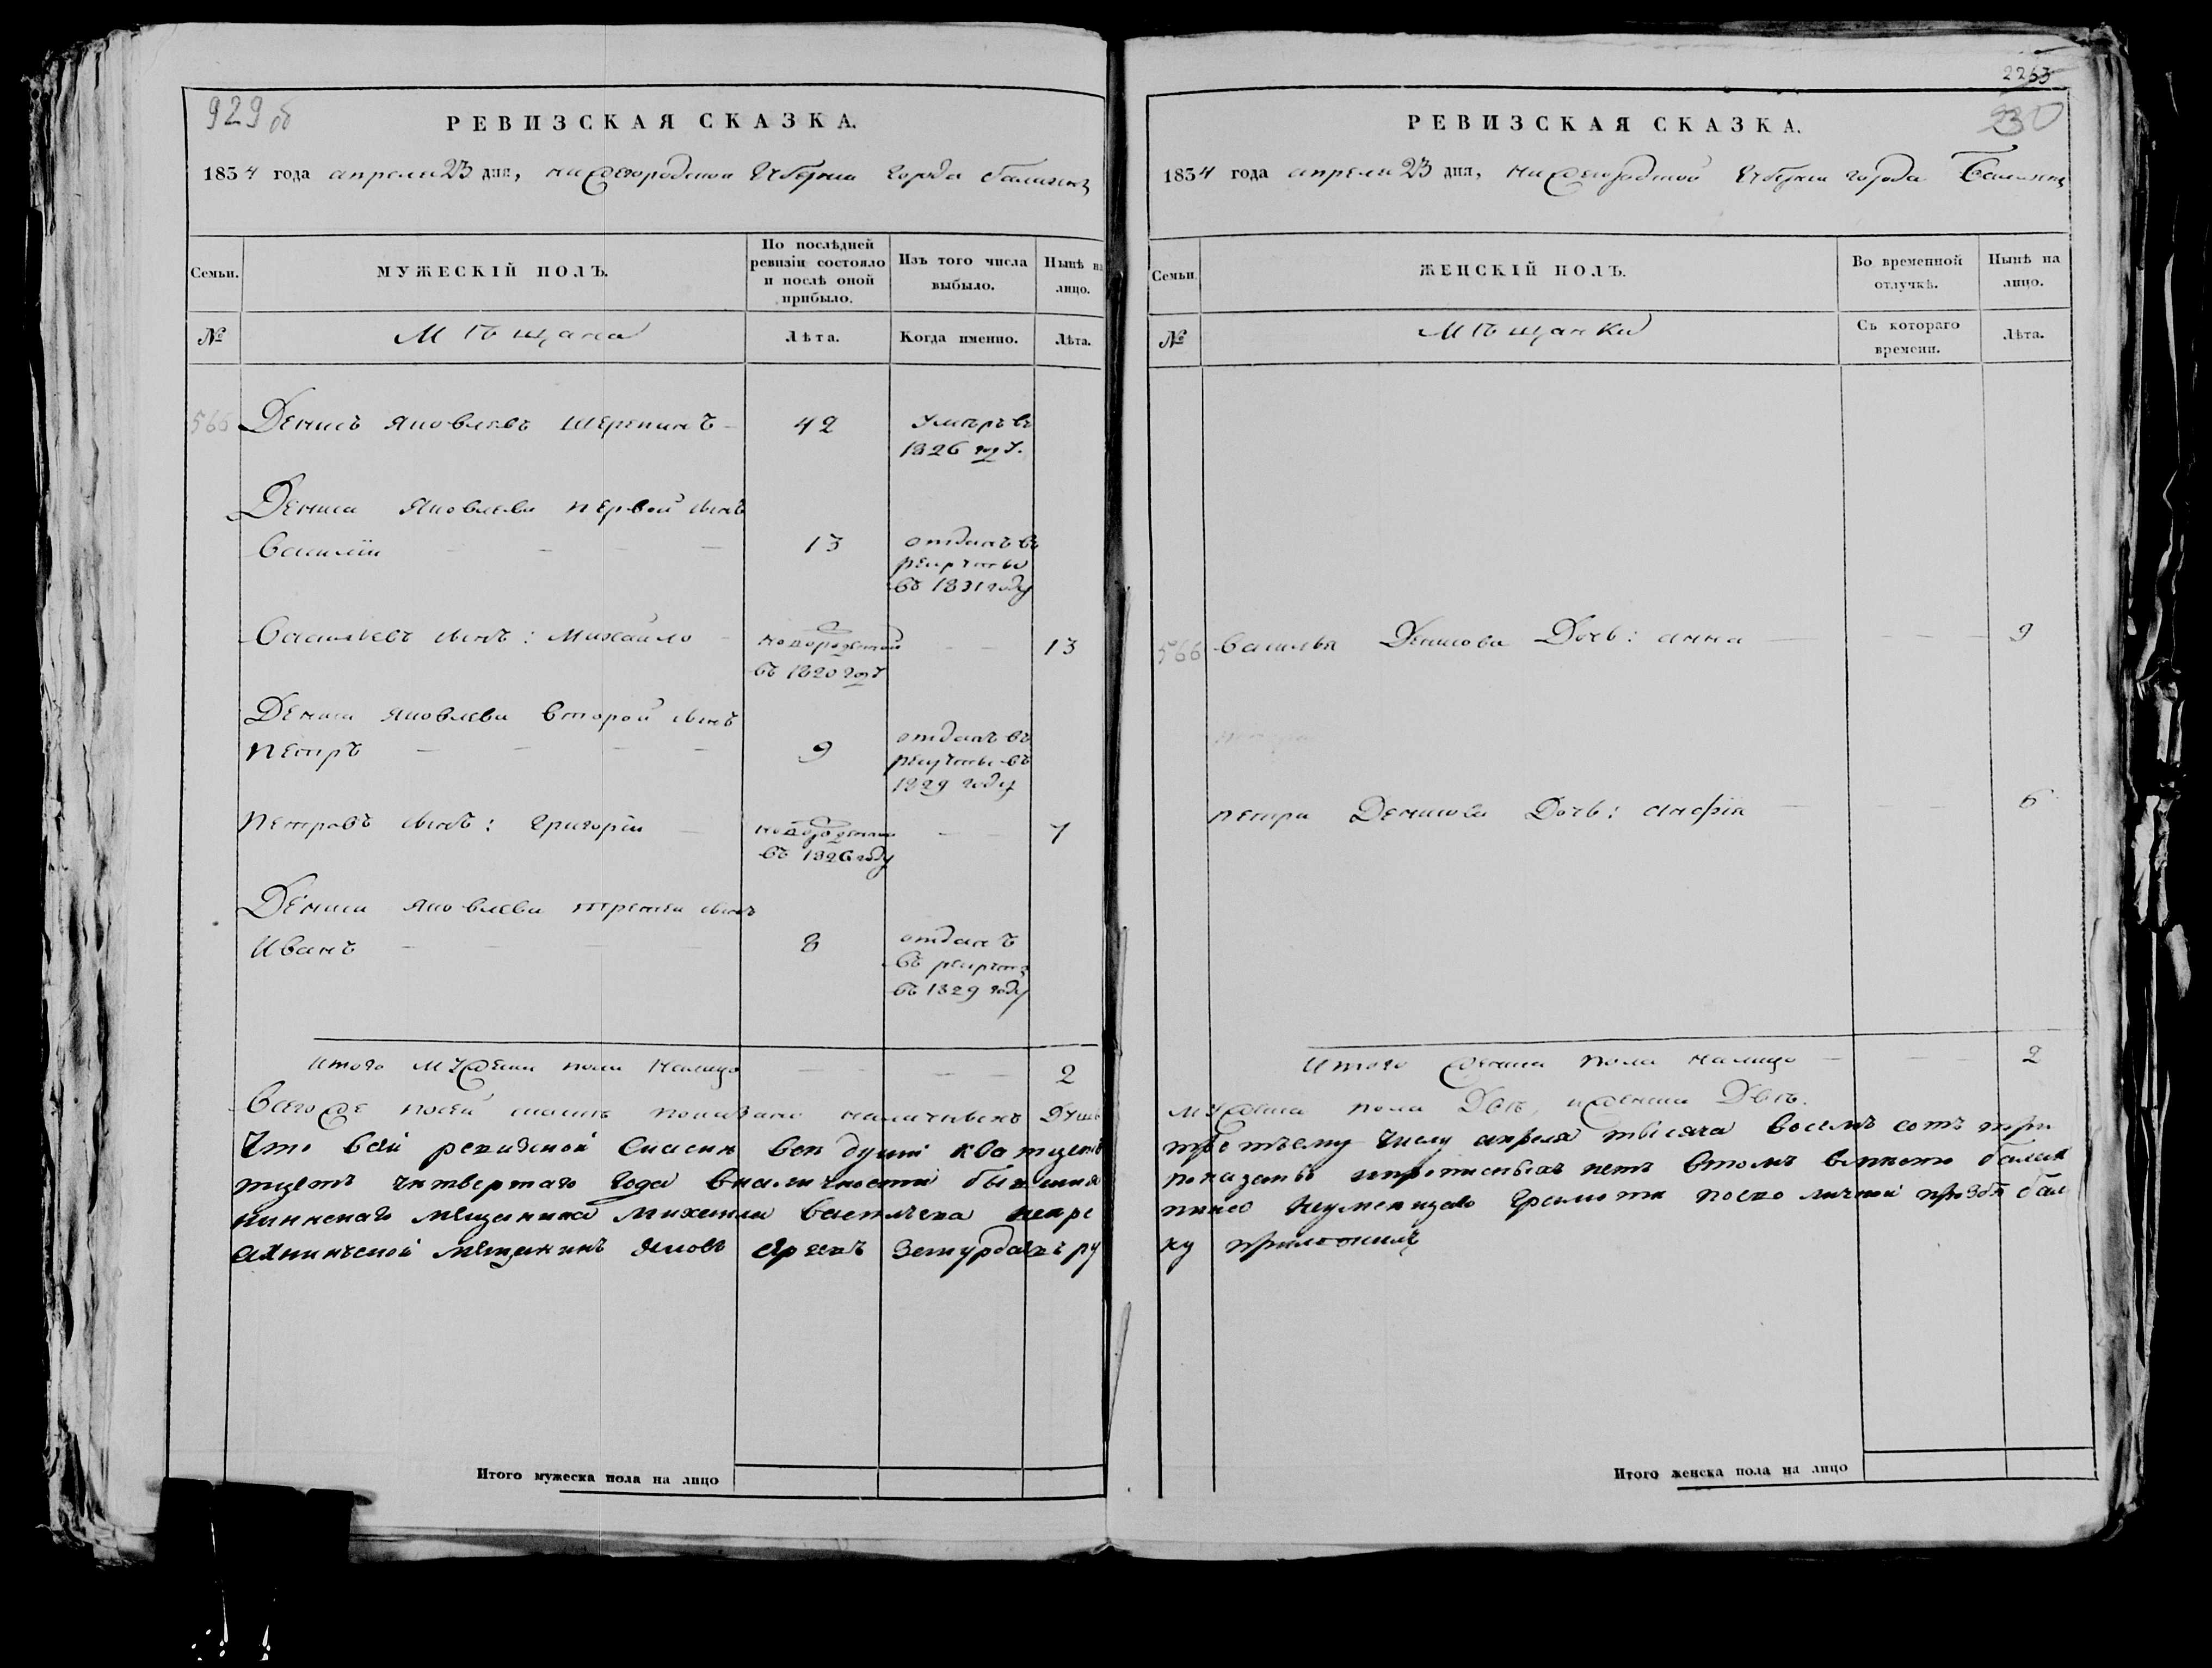 929 об
РЕВИЗСКАЯ СКАЗКА.
1834 года апреля 23 дня, нижегородской губернии города балахны
Семьи.
МУЖЕСКІЙ ПОЛЪ.
По послѣдней ревизіи состояло и послѣ оной прибыло.
Изъ того числа выбыло.
Нынѣ на лицо.
№
Мѣщана
Лѣта.
Когда именно.
Лѣта.
566 Денисъ Яковлевъ Щерепинъ 42 Умѣръ въ
1826 году.
Дениса Яковлева первой сынъ
Василій 13 отданъ въ
рекруты
въ 1831 году
Васильевъ сынъ: Михайло новорожденной 13
въ 1820 году
Дениса Яковлева второй сынъ
Петръ 9 отданъ въ
рекруты въ
1829 году
Петровъ сынъ: Григорій новорожденной 7
въ 1826 году
Дениса Яковлева третей сынъ
Иванъ 8 отданъ
въ рекруты
въ 1829 году
Итого мужеска пола налицо 2
Всего же посей сказкѣ показано наличныхъ Душъ
Что всей ревизской Сказки все души
тцеть четвертаго года вналичности
мещанина михаила василева
мещанинъ
Итого мужеска пола на лицо
2263
930
РЕВИЗСКАЯ СКАЗКА.
1834 года апреля 23 дня, нижегородской губернии города Балахны
Семьи.
ЖЕНСКІЙ ПОЛЪ.
Во временной отлучкѣ.
Нынѣ на лицо.
№
Мѣщанки
Съ котораго времени.
Лѣта.
566 Василья Денисова Дочь: анна 9
петра Денисова Дочь: анфія 6
Итого женска пола налицо 2
мужеска пола Двѣ, и женска Двѣ.
третъему числу апреля тысяча восемъ сотъ три
нетъ втомъ вместо
неумеющаго грамоте поево личной прозбе бал
ку приложилъ
Итого женска пола на лицо